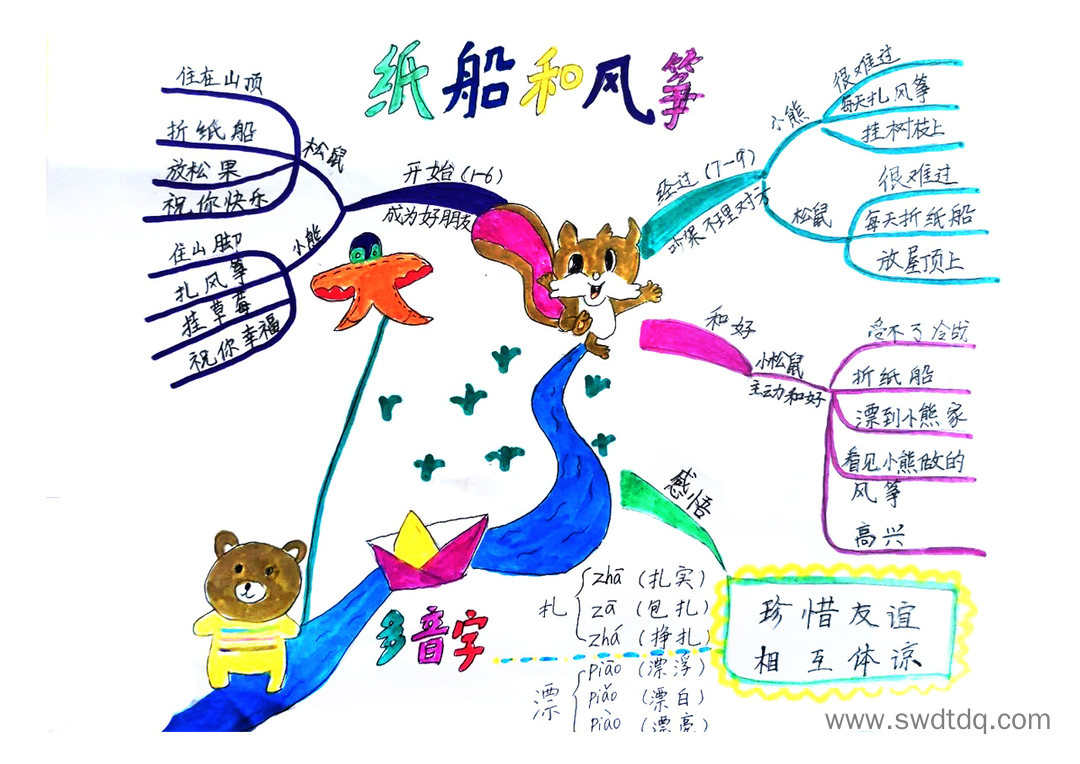 纸船和风筝
开始(1-6)
成为好朋友
松鼠
住在山顶
折纸船
放松果
祝你快乐
小熊
住山脚
扎风筝
挂草莓
祝你幸福
经过(7-9)
吵架不理对方
小熊
很难过
每天扎风筝
挂树枝上
松鼠
很难过
每天折纸船
放屋顶上
和好
小松鼠
主动和好
受不了冷战
折纸船
漂到小熊家
看见小熊做的
风筝
高兴
感悟
珍惜友谊
相互体谅
多音字
扎
zhā(扎实)
zā(包扎)
zhá(挣扎)
漂
piāo(漂浮)
piǎo(漂白)
piào(漂亮)
www.swdtdq.com